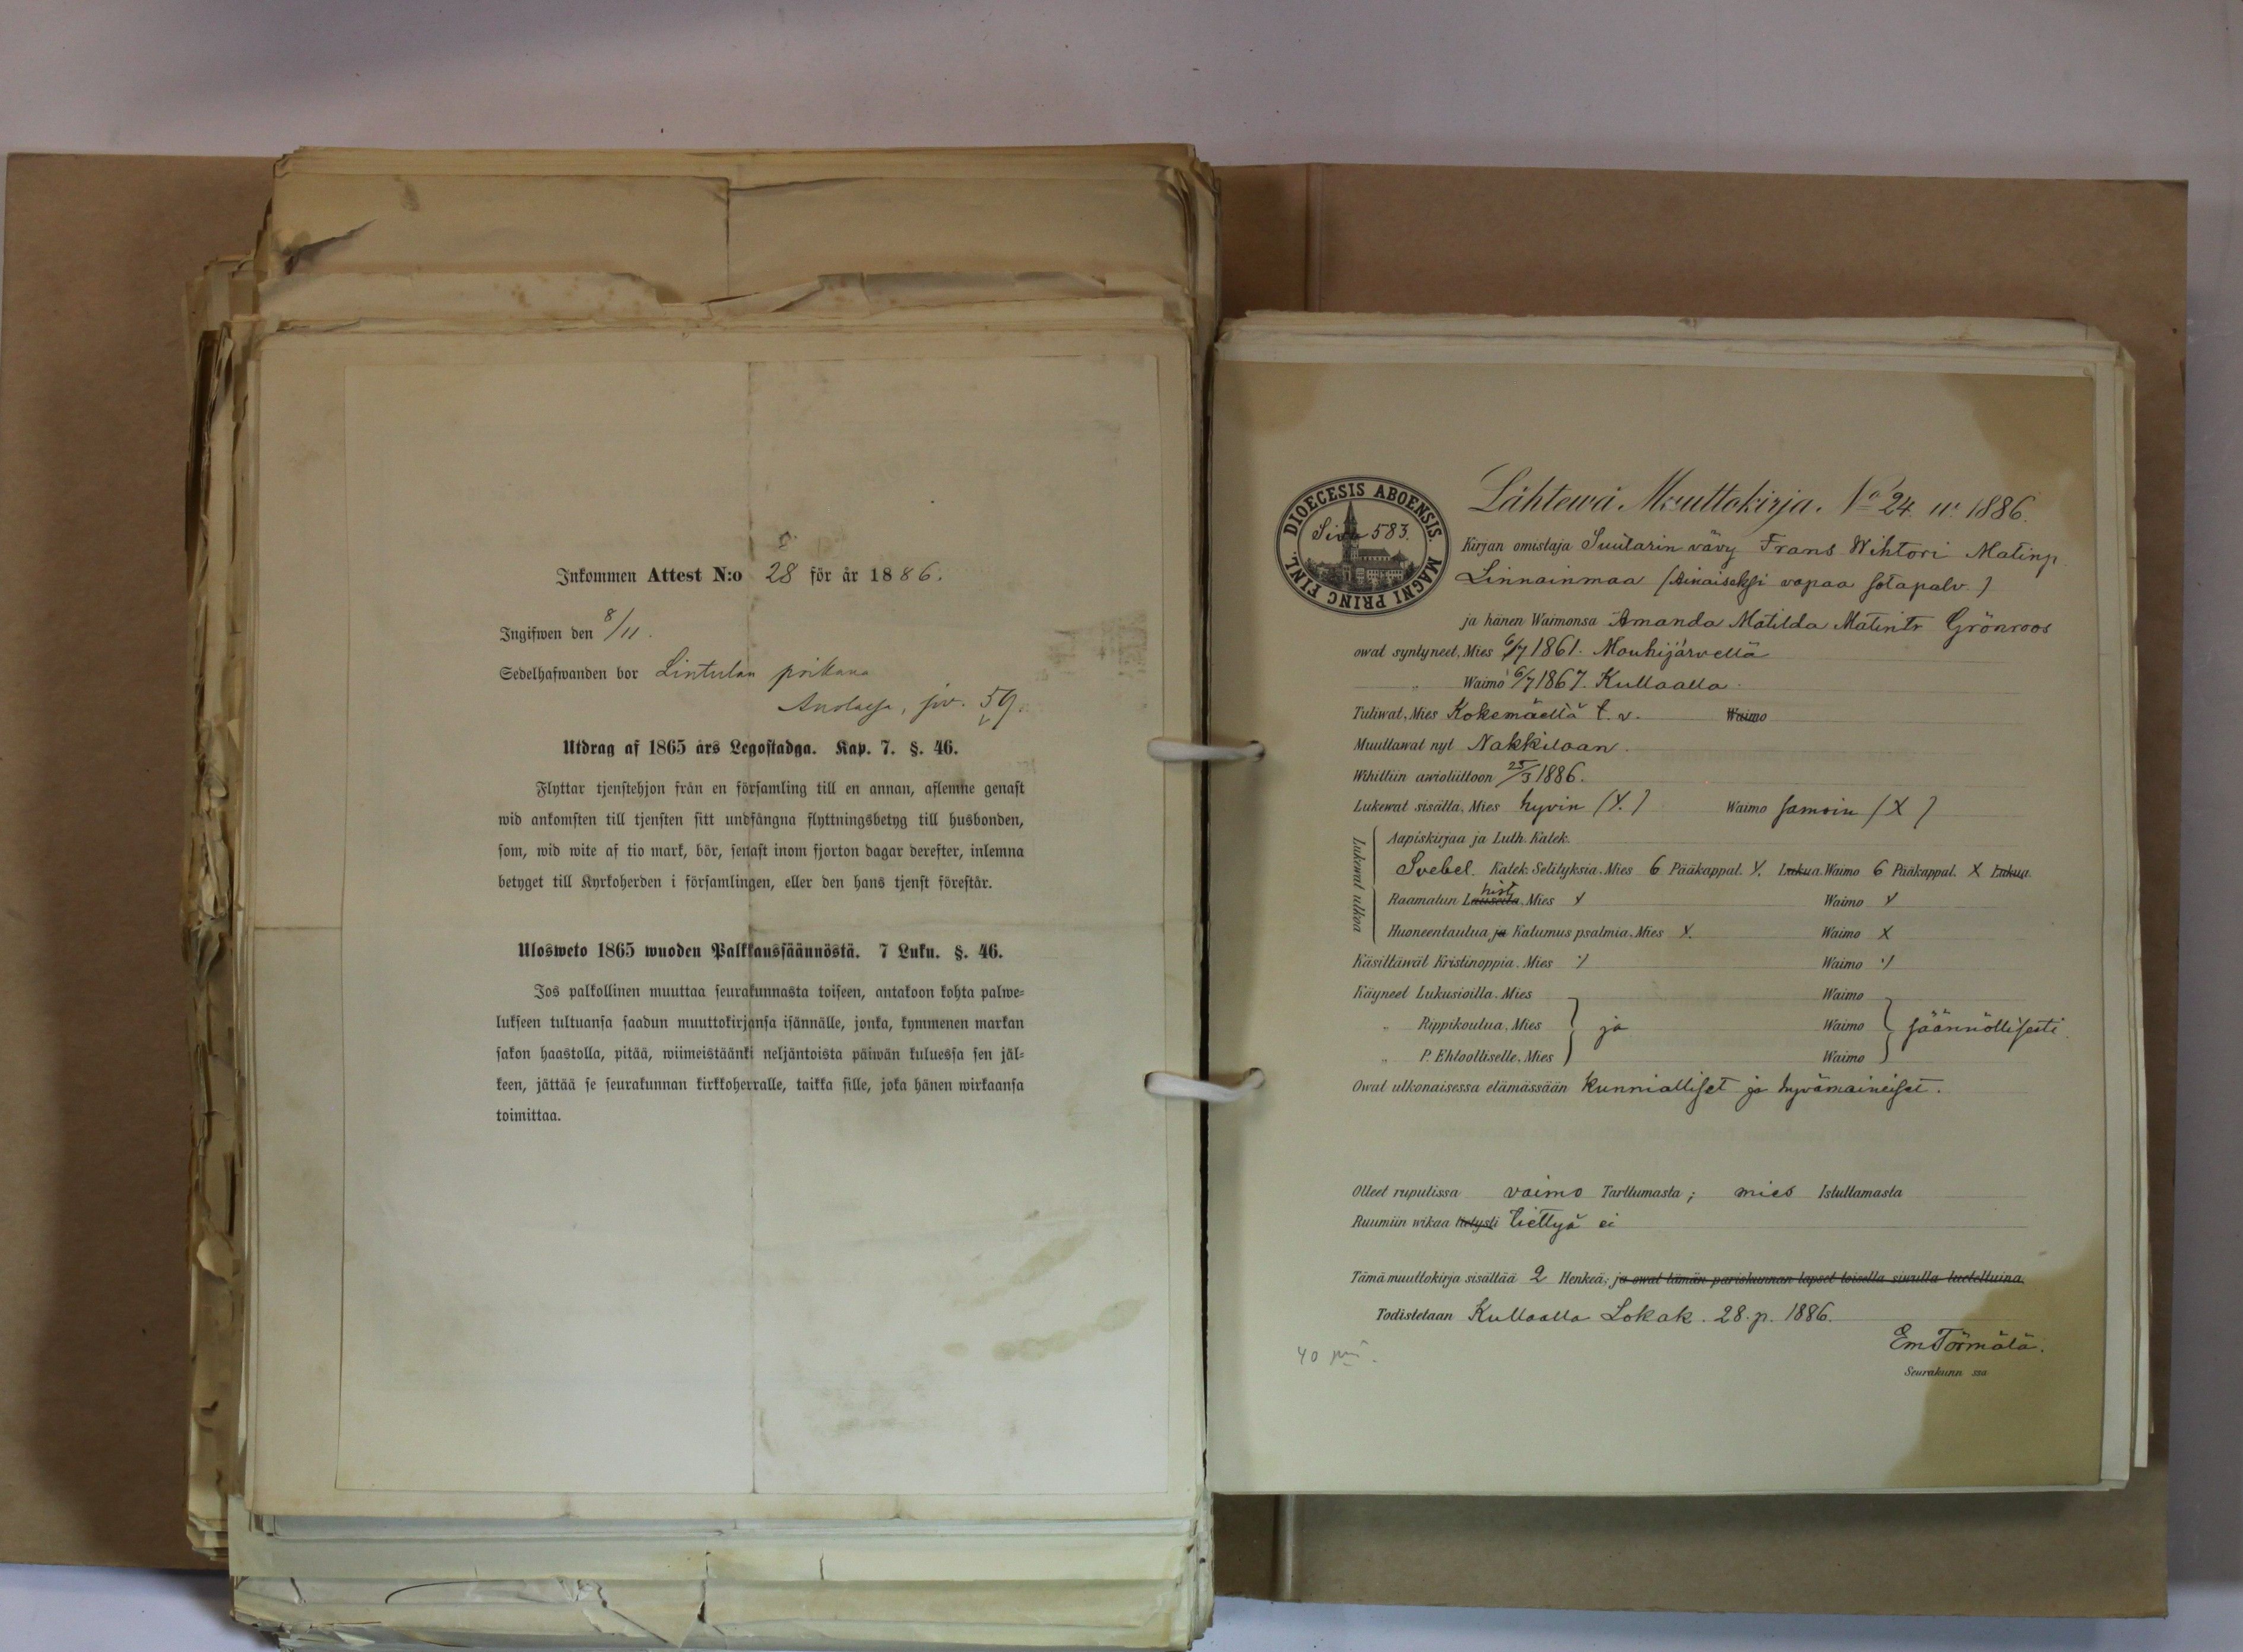 Inkommen Attest N:o 28 för år 1886.
Ingifwen den 8/11.
Sedelhafwanden bor Lintulan
Anolassa, siv. 59.
Utdrag af 1865 års Legostadga. Kap. 7. §. 46.
Flyttar tjenstehjon från en församling till en annan, aflemne genast
wid ankomsten till tjensten sitt undfångna flyttningsbetyg till husbonden,
som, wid wite af tio mark, bör, senast inom fjorton dagar derefter, inlemna
betyget till Kyrkoherden i församlingen, eller den hans tjenst förestår.
Ulosweto 1865 wuoden Palkkaussäännöstä. 7 Luku. §. 46.
Jos palkollinen muuttaa seurakunnasta toiseen, antakoon kohta palwe-
lukseen tultuansa saadun muuttokirjansa isännälle, jonka, kymmenen markan
sakon haastolla, pitää, wiimeistäänki neljäntoista päiwän kuluessa sen jäl-
keen, jättää se seurakunnan kirkkoherralle, taikka sille, joka hänen wirkaansa
toimittaa.
DIOECESIS ABOENSIS. MAGNI PRINC FINL.
Siva 583.
Lähtewä Muuttokirja. No 24. v. 1886.
Kirjan omistaja Suutarin vävy Frans Wihtori Matinp
Linnainmaa (Ainaiseksi vapaa sotapalv.)
ja hänen Waimonsa Amanda Matilda Matintr Grönroos
owat syntyneet, Mies 6/7 1861. Mouhijärvellä
„ Waimo 6/7 1867. Kullaalla.
Tuliwat, Mies Kokemäeltä t. v. Waimo
Muuttawat nyt Nakkilaan.
Wihittiin awioliittoon 25/3 1886.
Lukewat sisältä, Mies hyvin (Y.) Waimo samoin (X)
Lukewat ulkoa
Aapiskirjaa ja Luth. Katek.
Svebel. Katek. Selityksiä. Mies 6 Pääkappal. Y. Lukua. Waimo 6 Pääkappal. X Lukua.
Raamatun Lauseita hist. Mies Y Waimo Y
Huoneentaulua ja Katumus psalmia. Mies X. Waimo X
Käsittäwät Kristinoppia. Mies ·/ Waimo ·/
Käyneet Lukusioilla. Mies Waimo
„ Rippikoulua, Mies ja Waimo säännöllisesti.
„ P. Ehtoolliselle. Mies Waimo
Owat ulkonaisessa elämässään kunnialliset ja hyvämaineiset.
Olleet rupulissa vaimo Tarttumasta; mies Istuttamasta
Ruumiin wikaa tietysti tiettyä ei
Tämä muuttokirja sisältää 2 Henkeä; ja owat tämän pariskunnan lapset toisella siwulla lueteltuina.
Todistetaan Kullaalla Lokak. 28. p. 1886.
Em Törmälä.
Seurakunn ssa
40 pni.